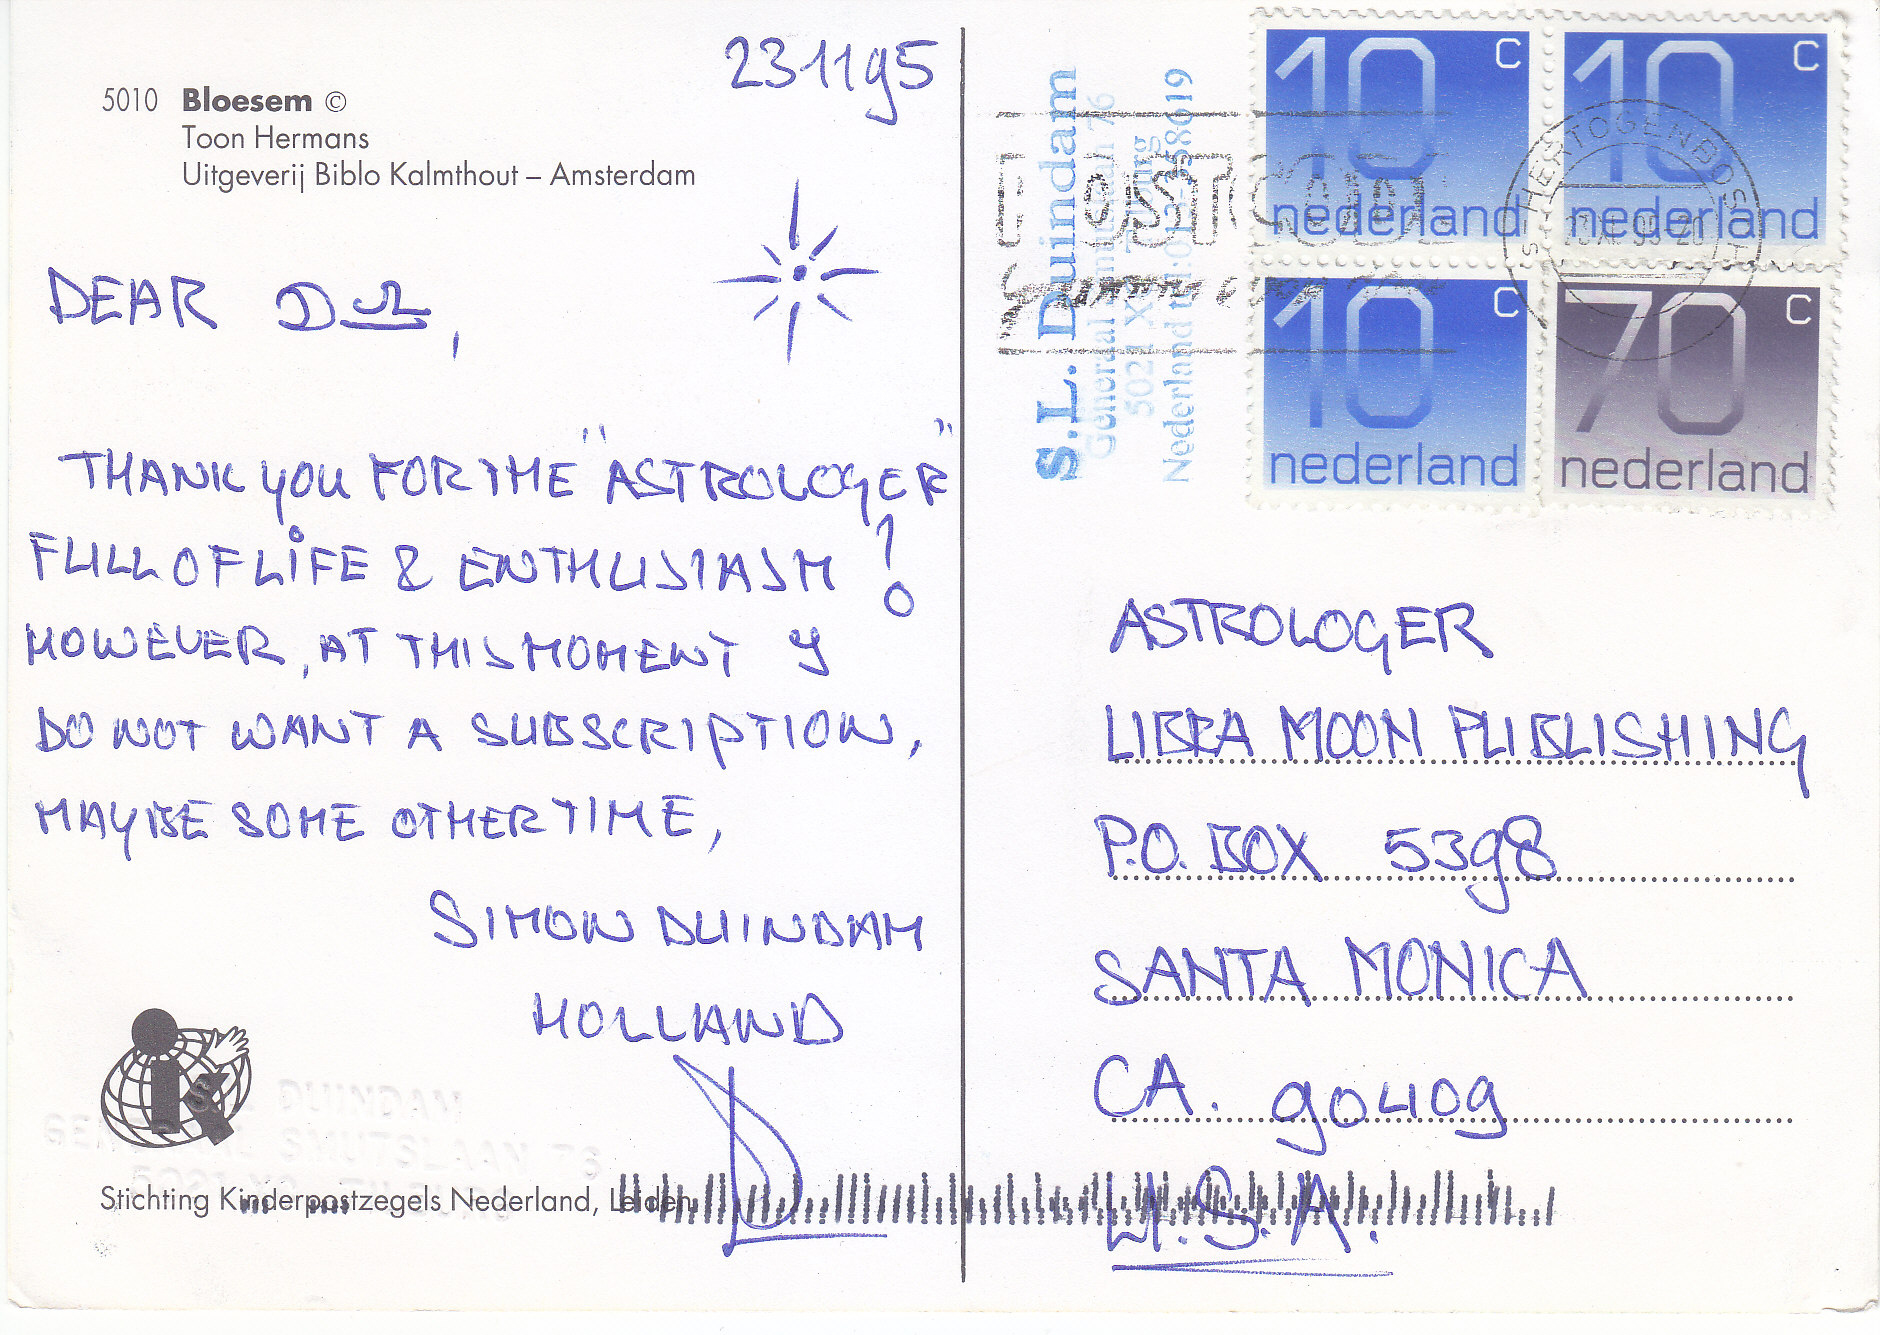 231195
5010 Bloesem ©
Toon Hermans
Uitgeverij Biblo Kalmthout – Amsterdam
DEAR
THANK YOU FOR THE "ASTROLOGER"
FULL OF LIFE & ENTHUSIASM!
HOWEVER, AT THIS MOMENT Y
DO NOT WANT A SUBSCRIPTION,
MAYBE SOME OTHER TIME,
SIMON DUINDAM
HOLLAND
iK
S.L. DUINDAM
GENERAAL SMUTSLAAN 76
Stichting Kinderpostzegels Nederland, Leiden.
S.L. Duindam
Generaal Smutslaan 76
5021 X Tilburg
Nederland
POSTCODE
10 c
nederland
10 c
nederland
10 c
nederland
70 c
nederland
'S-HERTOGENBOSCH
ASTROLOGER
LIBRA MOON PUBLISHING
P.O. BOX 5398
SANTA MONICA
CA. 90409
U.S.A.